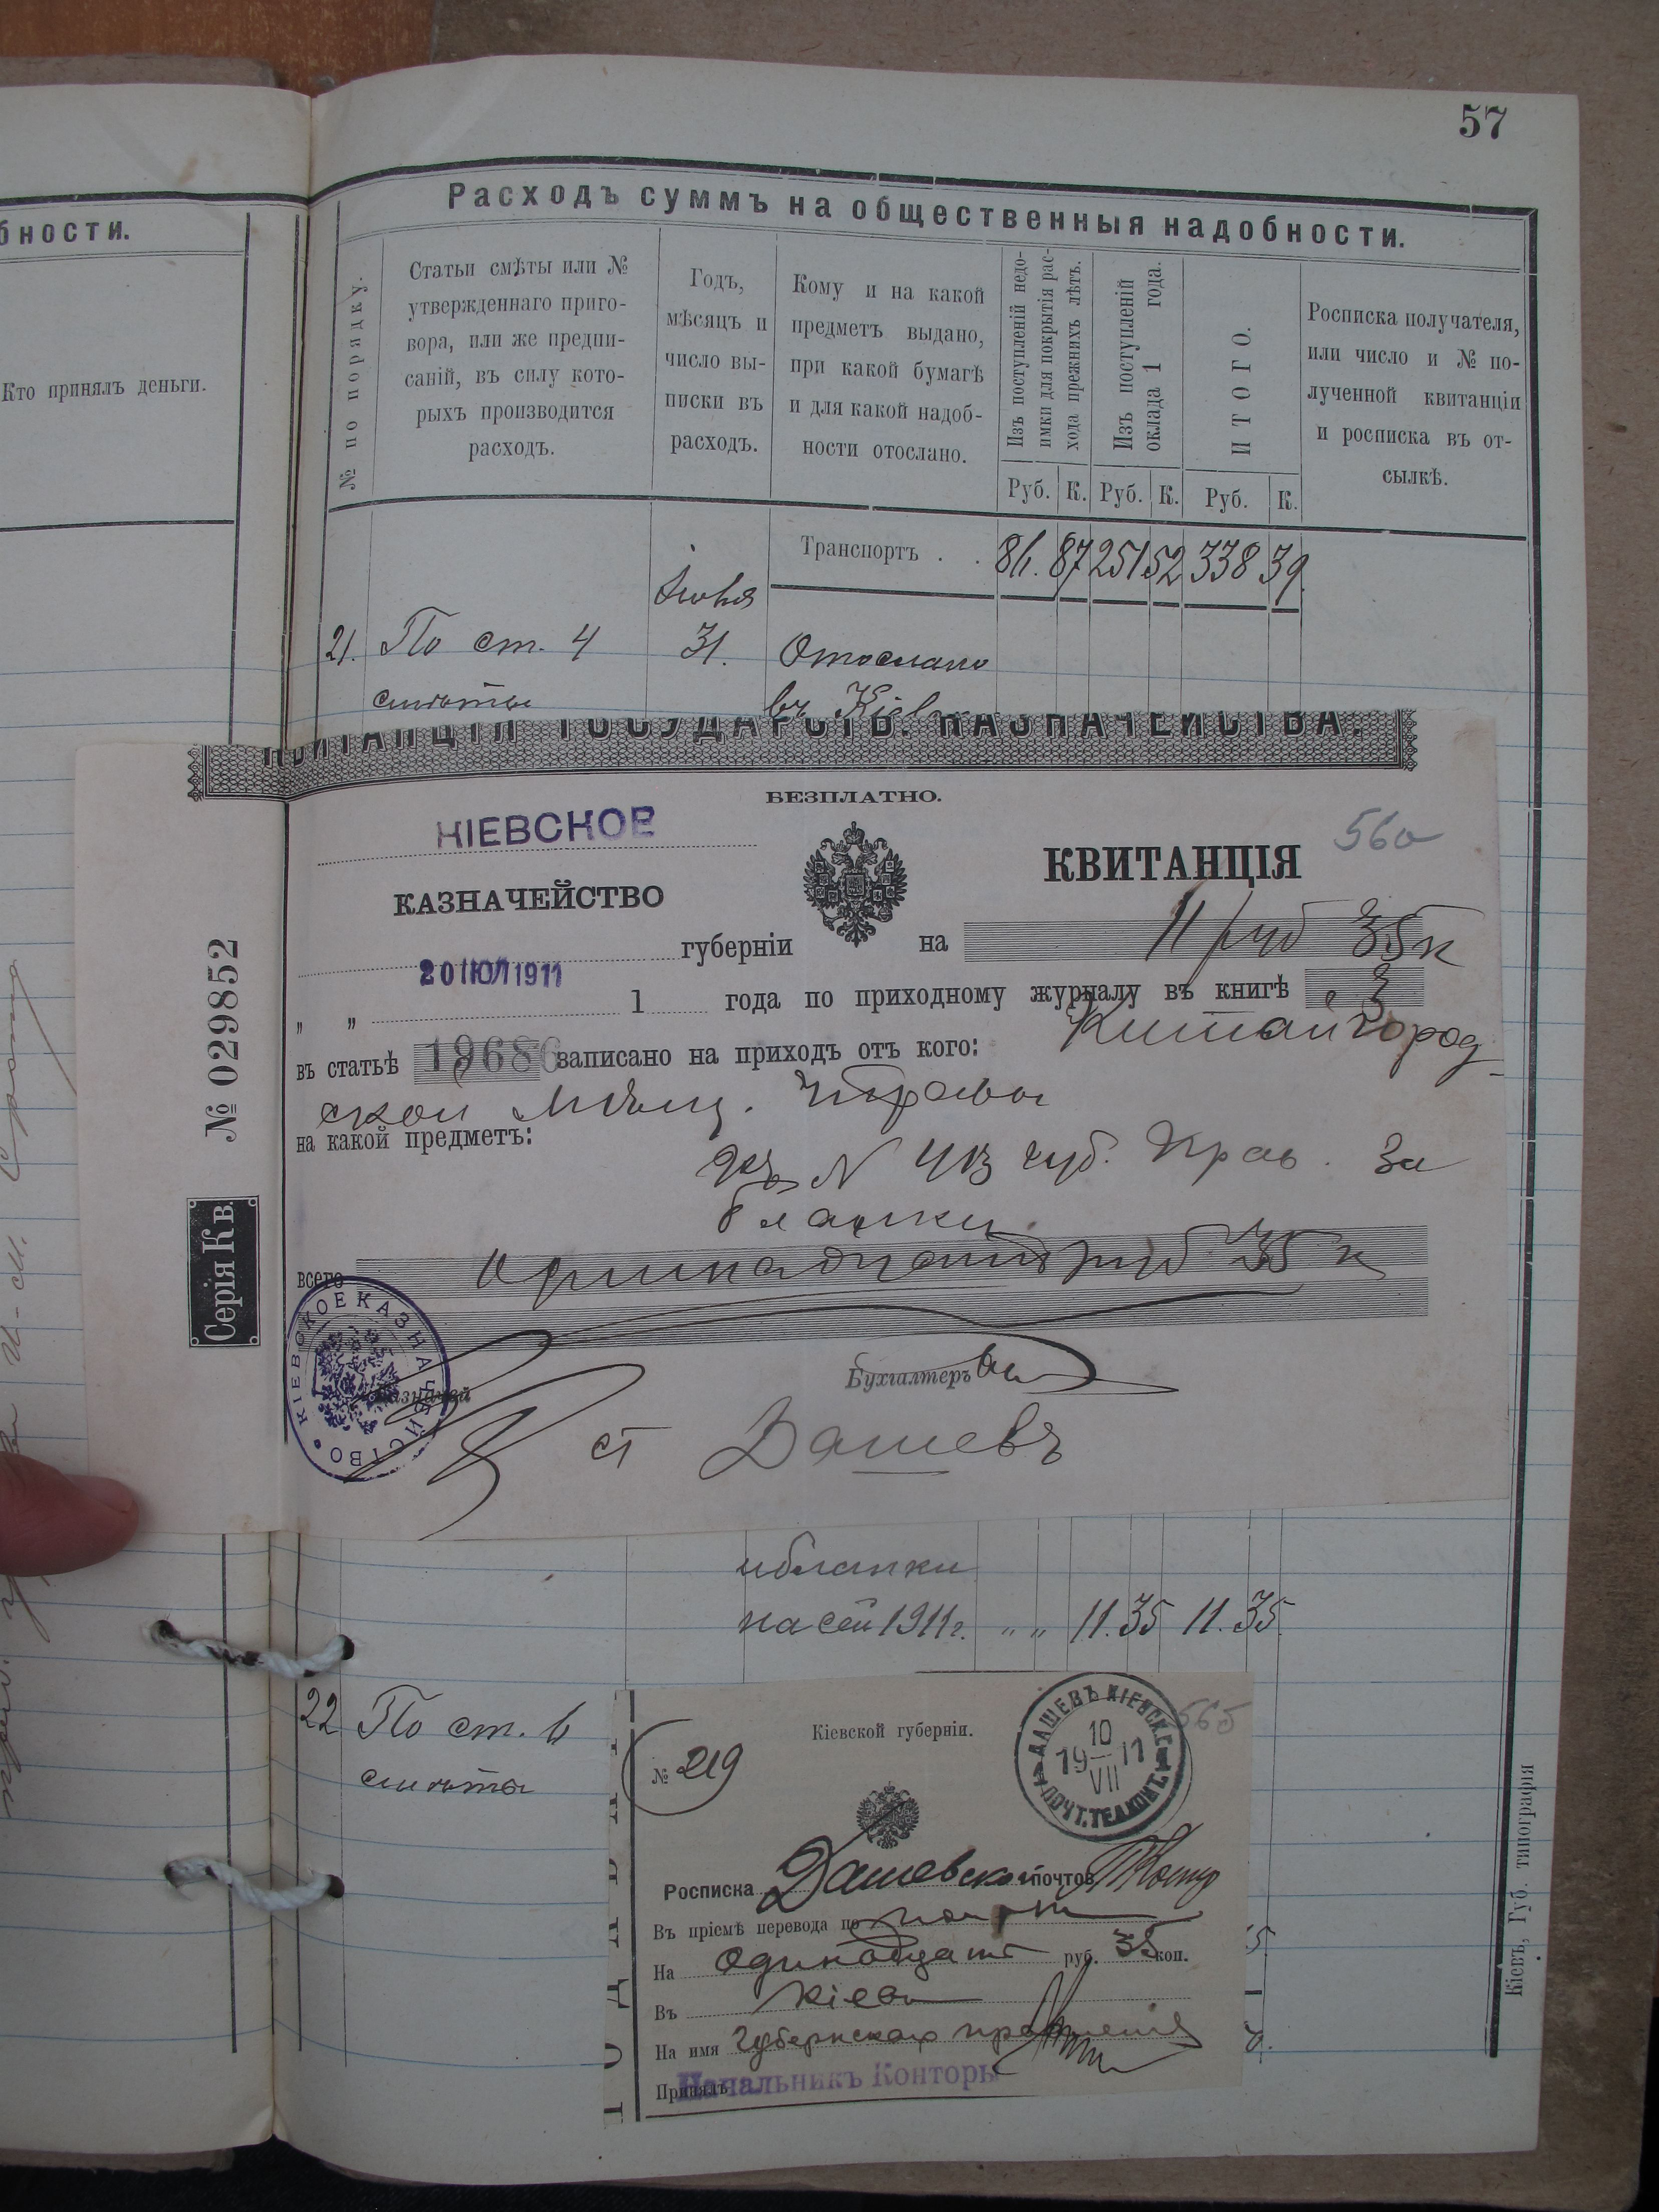 57
бности.
Кто принялъ деньги.
Расходъ суммъ на общественныя надобности.
№ по порядку.
Статьи смѣты или №
утвержденнаго приго-
вора, или же предпи-
саній, въ силу кото-
рыхъ производится
расходъ.
Годъ,
мѣсяцъ и
число вы-
писки въ
расходъ.
Кому и на какой
предметъ выдано,
при какой бумагѣ
и для какой надоб-
ности отослано.
Изъ поступленій недо-
имки для покрытія рас-
хода прежнихъ лѣтъ.
Изъ поступленій
оклада 1 года.
ИТОГО.
Росписка получателя,
или число и № по-
лученной квитанціи
и росписка въ от-
сылкѣ.
Руб. К. Руб. К. Руб. К.
Транспортъ . . 86. 87 251 52 338 39.
21. По ст. 4 31. Отослано
смѣты въ Кіев
КВИТАНЦІЯ ГОСУДАРСТВ. КАЗНАЧЕЙСТВА.
БЕЗПЛАТНО.
КІЕВСКОЕ
КАЗНАЧЕЙСТВО
КВИТАНЦІЯ
губерніи на 11 руб 35 к
20 ІЮЛ 1911
„ „ 1 года по приходному журналу въ книгѣ 3
въ статьѣ 19686 записано на приходъ отъ кого: Китайгород-
ской Мѣщ. Управы
на какой предметъ:
№ 413 губ. Прав. За
бланки
всего Одинадцать руб 35 к
№ 029852
Серія Кв.
КІЕВСКОЕ КАЗНАЧЕЙСТВО
Казначей
Бухгалтеръ
ст Дашевъ
и бланки
на сей 1911 г. „ „ 11. 35 11. 35.
22 По ст. 6
смѣты
Кіевской губерніи.
565
№ 219
ДАШЕВЪ КІЕВСК. Г.
10
19—11
VII
ПОЧТ. ТЕЛ. КОНТ.
Росписка Дашевской почтов.
Въ пріемѣ перевода по почт
На Одинадцать руб. 35 коп.
Въ Кіевъ
На имя Губернскаго правленія
Принялъ
Начальникъ Конторы
Кіевъ, Губ. типографія